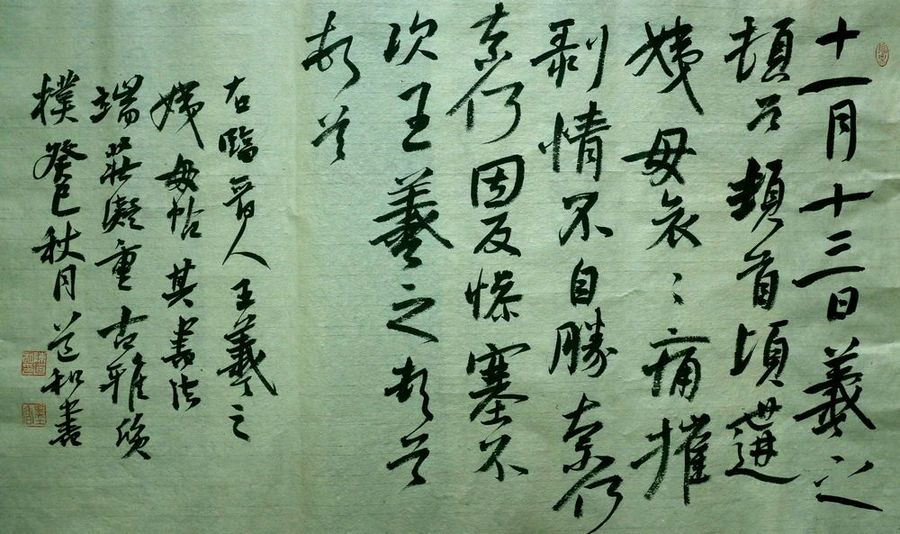 十一月十三日羲之
頓首頓首頃遘
姨母哀〻痛摧
剥情不自勝奈何
奈何因反慘塞不
次王羲之頓首
頓首
右臨晉人王羲之
姨母帖其書法
端莊凝重古雅質
樸癸巳秋月道和書